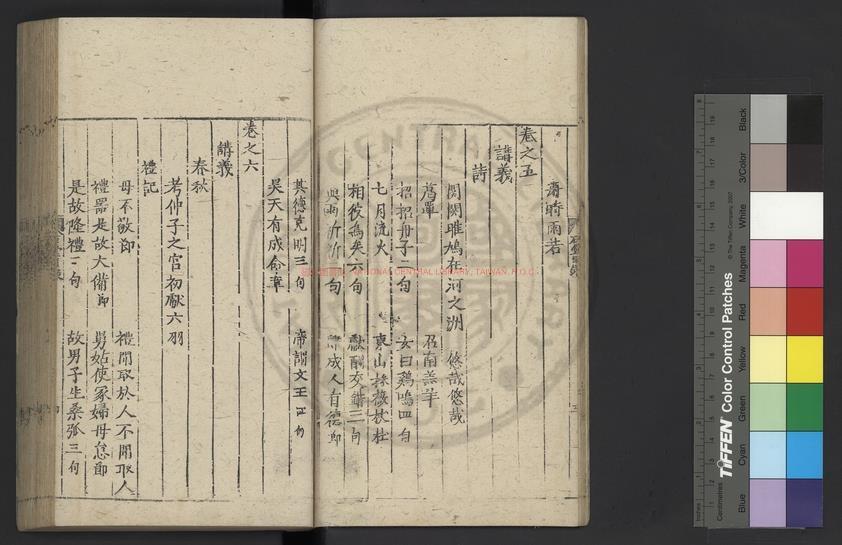 肅時雨若
卷之五
講義
詩
関関雎鳩在河之洲 悠哉悠哉
葛覃 召南羔羊
招招舟子二句 女曰鷄鳴四句
七月流火 東山採薇杕杜
相彼鳥矣六句 獻酬交錯三句
興雨祈祈一句 肆成人有德節
其德克明三句 帝謂文王四句
昊天有成命章
卷之六
講義
春秋
考仲子之宮初獻六羽
禮記
毋不敬節 禮聞取於人不聞取人
禮器是故大備節 舅姑使冢婦毋怠節
是故隆禮二句 故男子生桑弧三句
NATIONAL CENTRAL LIBRARY, TAIWAN, R.O.C.
TIFFEN Color Control Patches
© The Tiffen Company, 2007
Centimetres
Inches
Blue
Cyan
Green
Yellow
Red
Magenta
White
3/Color
Black